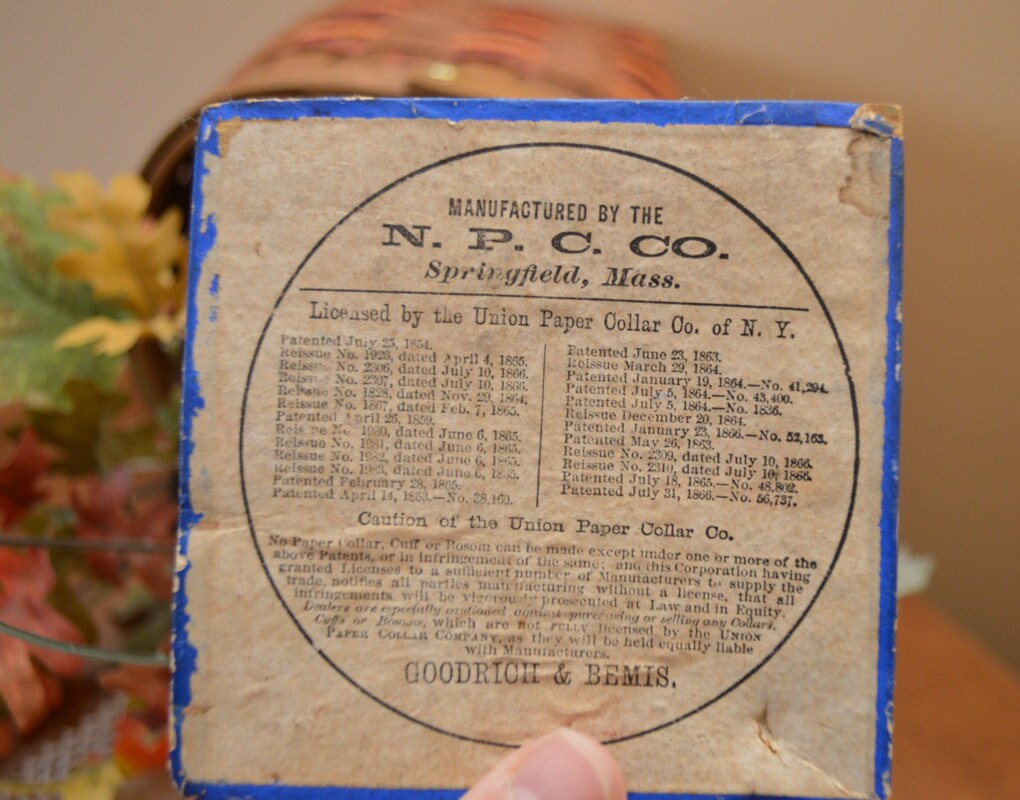 MANUFACTURED BY THE
N. P. C. CO.
Springfield, Mass.
Licensed by the Union Paper Collar Co. of N. Y.
Patented July 25, 1854.
Reissue No. 1926, dated April 4, 1865.
Reissue No. 2306, dated July 10, 1866.
Reissue No. 2307, dated July 10, 1866.
Reissue No. 1828, dated Nov. 29, 1864.
Reissue No. 1867, dated Feb. 7, 1865.
Patented April 26, 1859.
Reissue No. 1980, dated June 6, 1865.
Reissue No. 1981, dated June 6, 1865.
Reissue No. 1982, dated June 6, 1865.
Reissue No. 1983, dated June 6, 1865.
Patented February 28, 1865.
Patented April 14, 1863.—No. 38,160.
Patented June 23, 1863.
Reissue March 29, 1864.
Patented January 19, 1864.—No. 41,294.
Patented July 5, 1864.—No. 43,400.
Patented July 5, 1864.—No. 1836.
Reissue December 20, 1864.
Patented January 23, 1866.—No. 52,163.
Patented May 26, 1863.
Reissue No. 2309, dated July 10, 1866.
Reissue No. 2310, dated July 10, 1866.
Patented July 18, 1865.—No. 48,802.
Patented July 31, 1866.—No. 56,737.
Caution of the Union Paper Collar Co.
No Paper Collar, Cuff or Bosom can be made except under one or more of the
above Patents, or in infringement of the same; and this Corporation having
granted Licenses to a sufficient number of Manufacturers to supply the
trade, notifies all parties manufacturing without a license, that all
infringements will be vigorously prosecuted at Law and in Equity.
Dealers are especially cautioned against purchasing or selling any Collars,
Cuffs or Bosoms, which are not FULLY licensed by the UNION
PAPER COLLAR COMPANY, as they will be held equally liable
with Manufacturers.
GOODRICH & BEMIS.